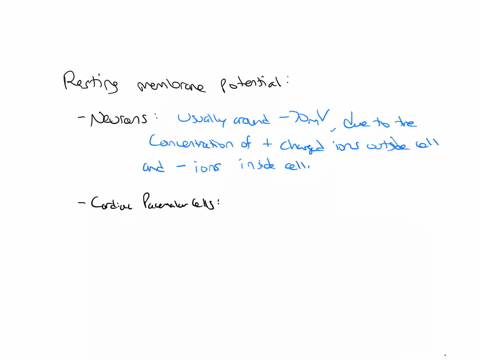 Resting membrane potential:
- Neurons: Usually around -70mV, due to the
Concentration of + charged ions outside cell
and - ions inside cell.
- Cardiac Pacemaker Cells: